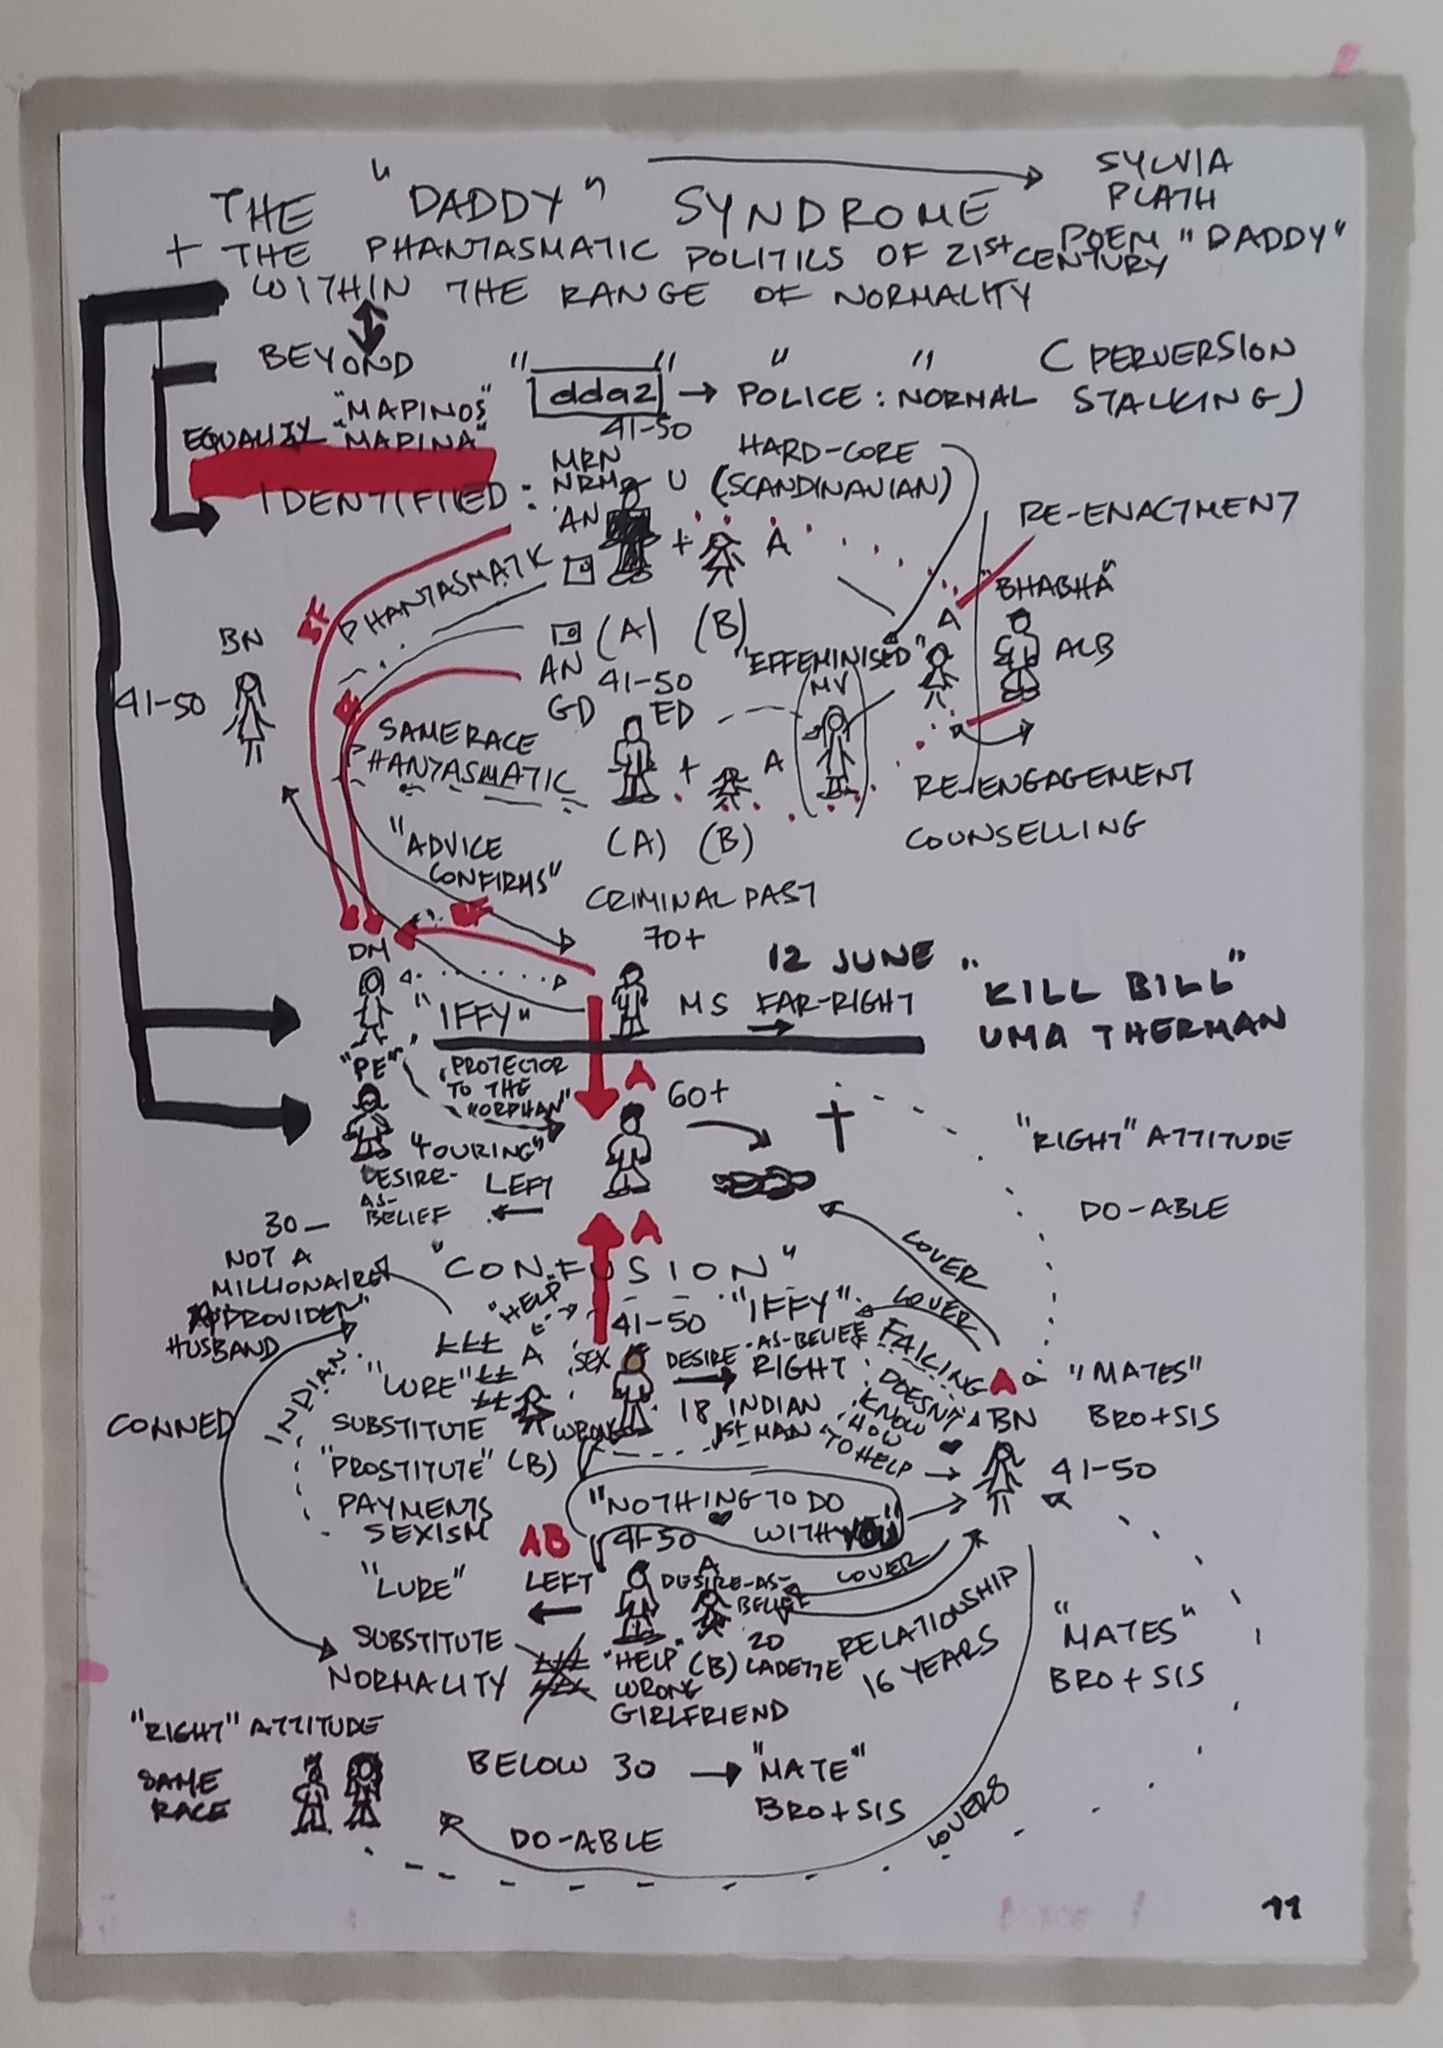 THE "DADDY" SYNDROME
SYLVIA
PLATH
POEM "DADDY"
+ THE PHANTASMATIC POLITICS OF 21ST CENTURY
WITHIN THE RANGE OF NORMALITY
BEYOND
"dda2" → "POLICE: "NORMAL" (PERVERSION
STALKING)
"MAPINOS"
EQUALITY "MAPINA"
IDENTIFIED:
41-50
MRN
U
AN
HARD-CORE
(SCANDINAVIAN)
+ A
RE-ENACTMENT
PHANTASMATIK
"BHABHA"
A
ALB
BN
41-50
(A) (B)
AN 41-50
GD ED
"EFFEMINISED"
MV
SAME RACE
PHANTASMATIC
+ A
RE-ENGAGEMENT
COUNSELLING
(A) (B)
"ADVICE
CONFIRMS"
CRIMINAL PAST
70+
DM
12 JUNE
MS FAR-RIGHT
"KILL BILL"
UMA THERMAN
"IFFY"
"PE"
PROTECTOR
TO THE
"ORPHAN"
A
60+
"TOURING"
"RIGHT" ATTITUDE
DESIRE-
AS-
BELIEF
LEFT
DO-ABLE
A
30-
NOT A
MILLIONAIRE
PROVIDER"
HUSBAND
"CONFUSION"
LOVER
LOVER
"HELP"
41-50
"IFFY"
A
SEX
DESIRE-AS-BELIEF
RIGHT
FAILING
A
"MATES"
BRO+SIS
"LURE"
INDIAN
CONNED
SUBSTITUTE
WRONG
18 INDIAN
1ST MAN
DOESN'T
KNOW
HOW
TO HELP
BN
41-50
"PROSTITUTE" (B)
PAYMENTS
SEXISM
"NOTHING TO DO
WITH YOU"
AB
41-50
"LURE"
LEFT
A
DESIRE-AS-
BELIEF
LOVER
SUBSTITUTE
NORMALITY
"HELP" (B)
WRONG
GIRLFRIEND
20
CADETTE
RELATIONSHIP
16 YEARS
"MATES"
BRO + SIS
"RIGHT" ATTITUDE
SAME
RACE
BELOW 30 → "MATE"
BRO+SIS
DO-ABLE
LOVERS
11